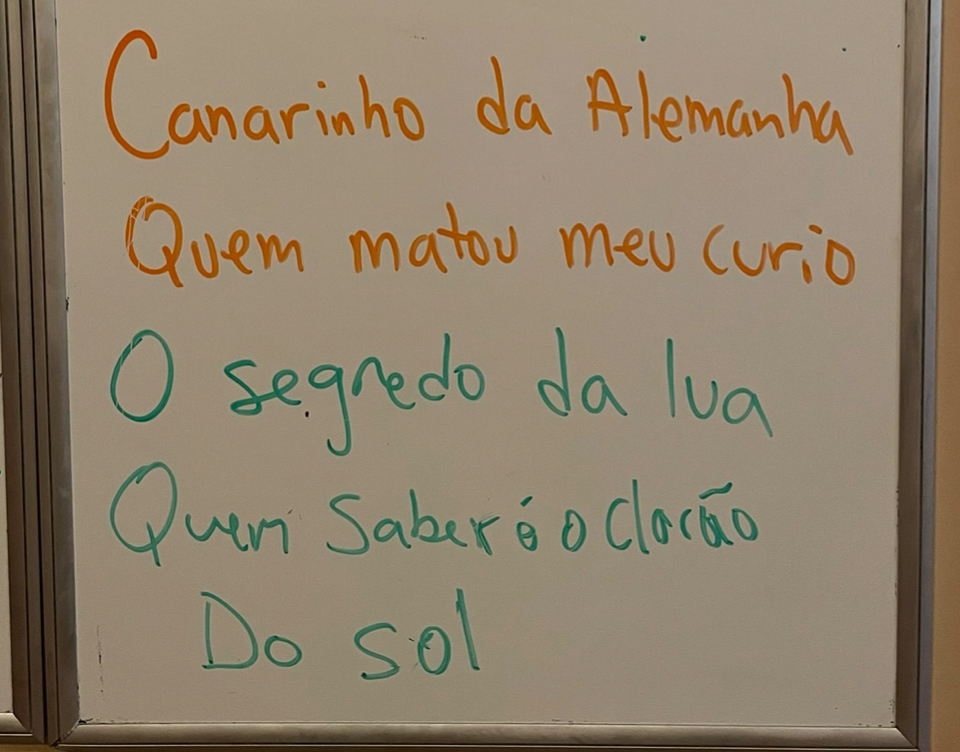 Canarinho da Alemanha
Quem matou meu curio
O segredo da lua
Quem Saber é o Clarão
Do sol